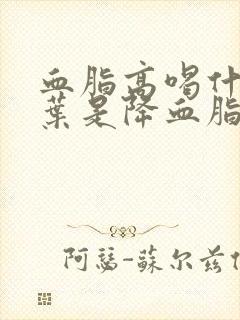 血脂高喝什
葉是降血脂
阿瑟-蘇尔兹